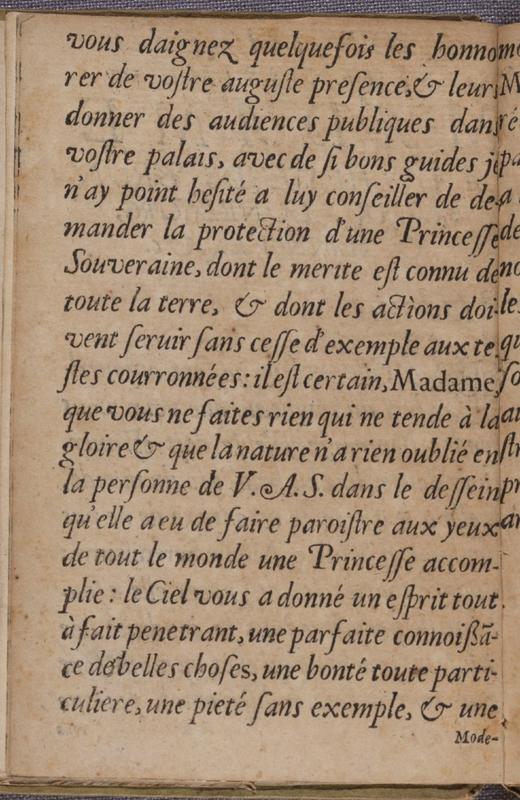 vous daignez quelquefois les honno
rer de voſtre auguſte preſence, & leur
donner des audiences publiques dans
voſtre palais, avec de ſi bons guides je
n'ay point heſité a luy conſeiller de de-
mander la protection d'une Princeſſe
Souveraine, dont le merite eſt connu de
toute la terre, & dont les actions doi-
vent ſeruir ſans ceſſe d'exemple aux te-
ſtes courronnées: il eſt certain, Madame,
que vous ne faites rien qui ne tende à la
gloire & que la nature n'a rien oublié en
la perſonne de V. A. S. dans le deſſein
qu'elle a eu de faire paroiſtre aux yeux
de tout le monde une Princeſſe accom-
plie: le Ciel vous a donné un eſprit tout
à fait penetrant, une parfaite connoiſſã-
ce de belles choſes, une bonté toute parti-
culiere, une pieté ſans exemple, & une
Mode-